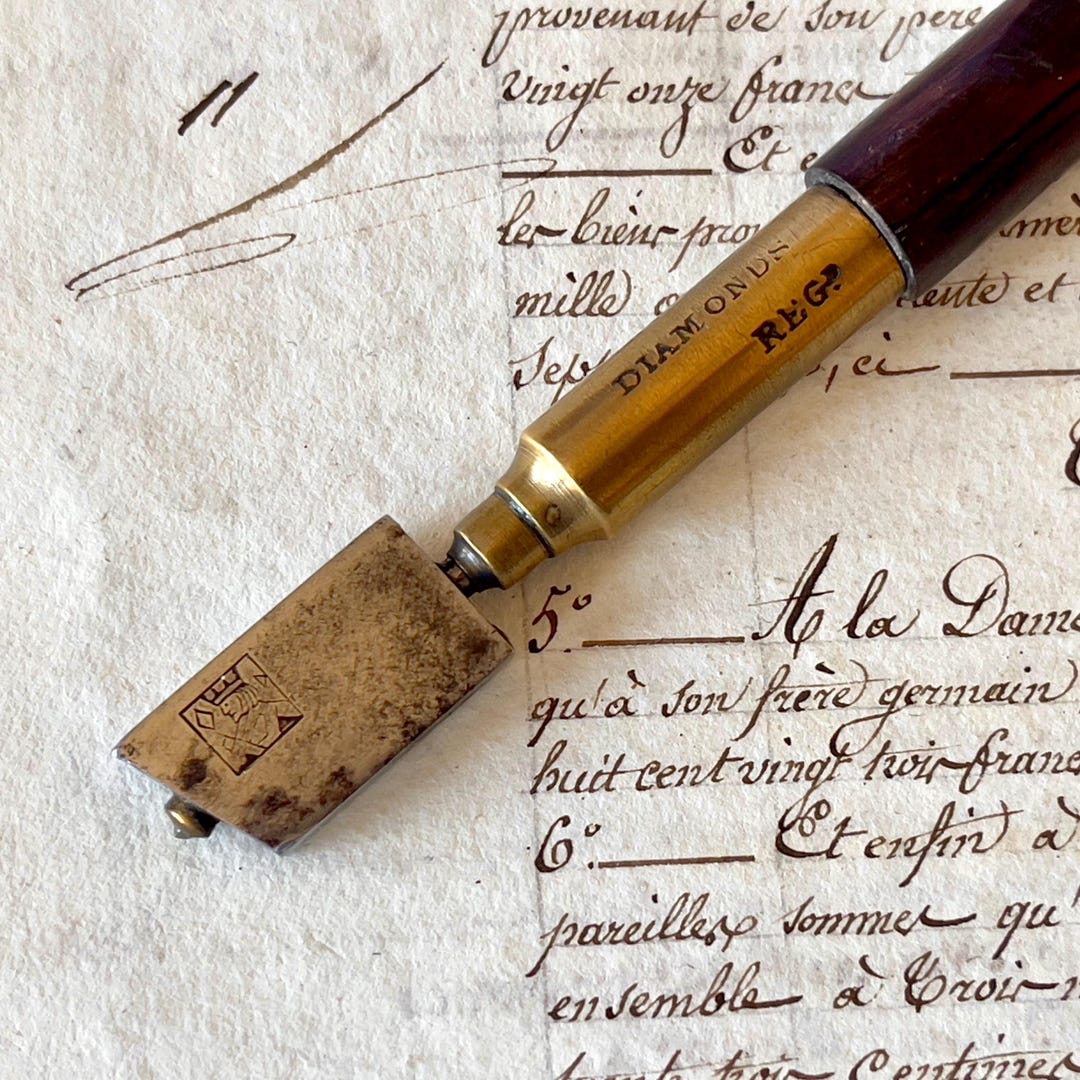 provenant de son père
vingt onze francs
Et
les biens
mille
et
ci
DIAMONDS
REGD
5° A la Dame
qu'à son frère germain
huit cent vingt trois francs
6° Et enfin à
pareilles sommes qu'
ensemble à Trois
trente trois Centimes